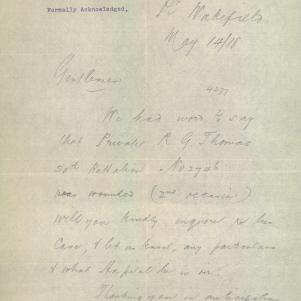 Formally Acknowledged,
Pt Wakefield
May 14/18
Gentlemen
4277
We had word to say
that Private R G Thomas
50th Battalion No 2946
was wounded (2nd occasion)
Will you kindly inquire re his
Case, & let us know, any particulars
& what Hospital he is in.
Thanking you in anticipation